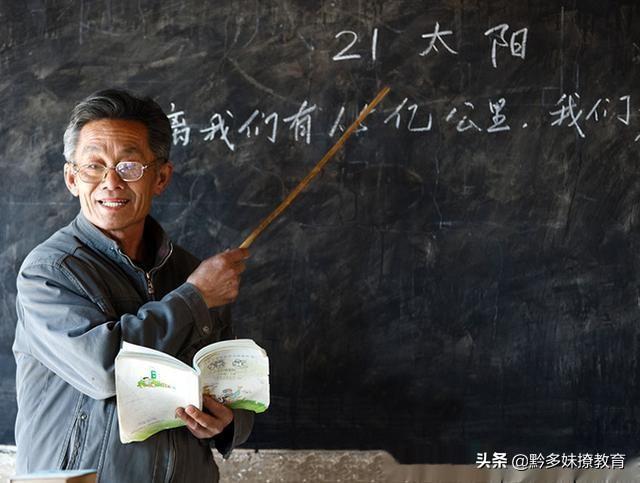 21 太阳
离我们有1.5亿公里.我们
头条 @黔多妹撩教育